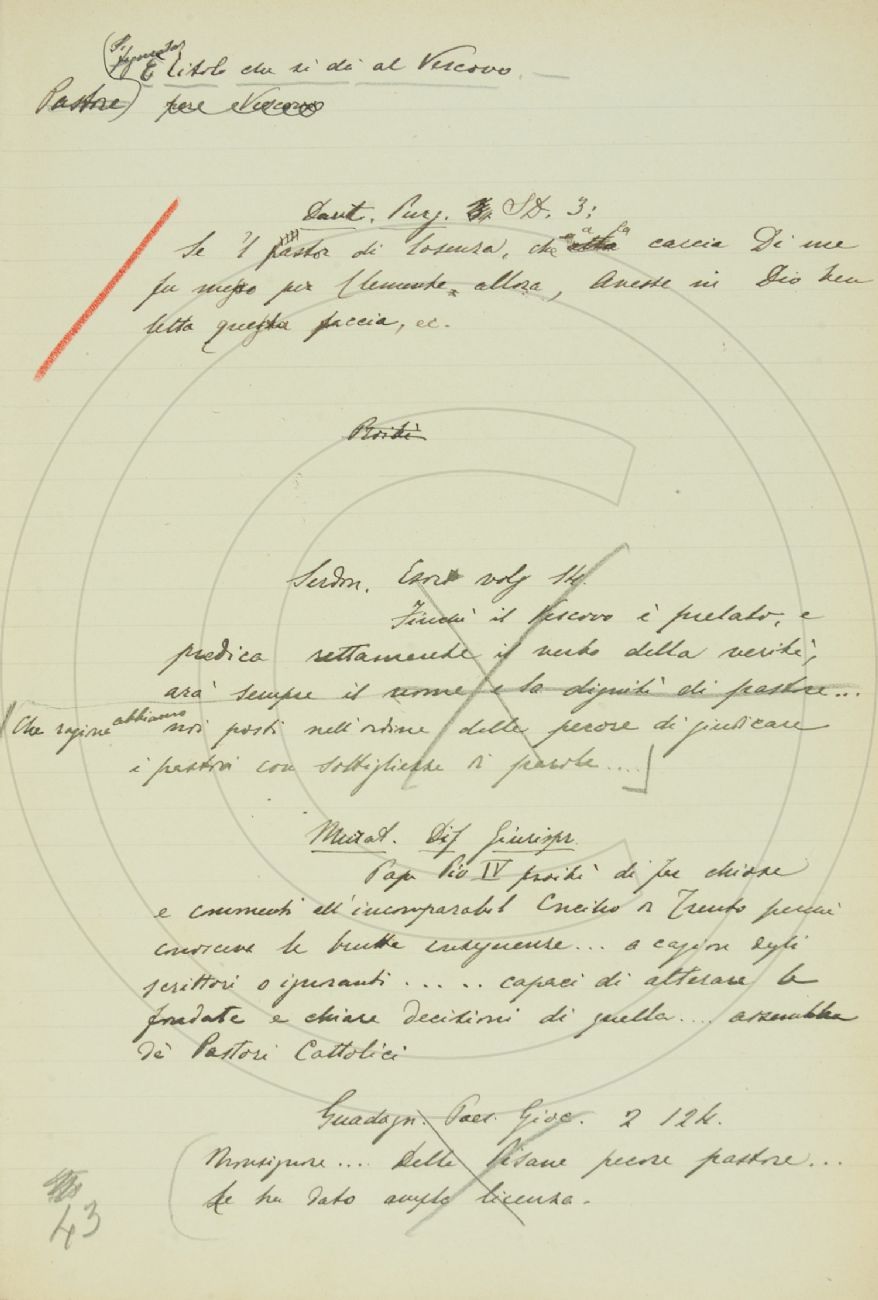 È titolo che si dà al Vescovo.
Pastore) per Vescovo
Dant. Purg. 3:
Se 'l pastor di Cosenza, che alla caccia Di me
fu messo per Clemente allora, Avesse in Dio ben
letta questa faccia, ec.
Proibì
Serdon. Esort volg 14.
Finchè il Vescovo è prelato, e
predica rettamente il verbo della verità,
arà sempre il nome e la dignità di pastore...
Che ragione abbiamo noi posti nell'ordine delle pecore di giudicare
i pastori con sottigliezze di parole....]
Murat. Dif Giurispr.
Papa Pio IV proibì di far chiose
e commenti all'incomparabil Concilio di Trento perchè
conosceva le brutte conseguenze... a cagion degli
scrittori o ignoranti ..... capaci di alterare le
fondate e chiare decisioni di quella.... assemblea
de' Pastori Cattolici
Guadagn. Poes. Gioc. 2 124.
Monsignore.... Delle Pisane pecore pastore...
Le ha dato ampla licenza.
43